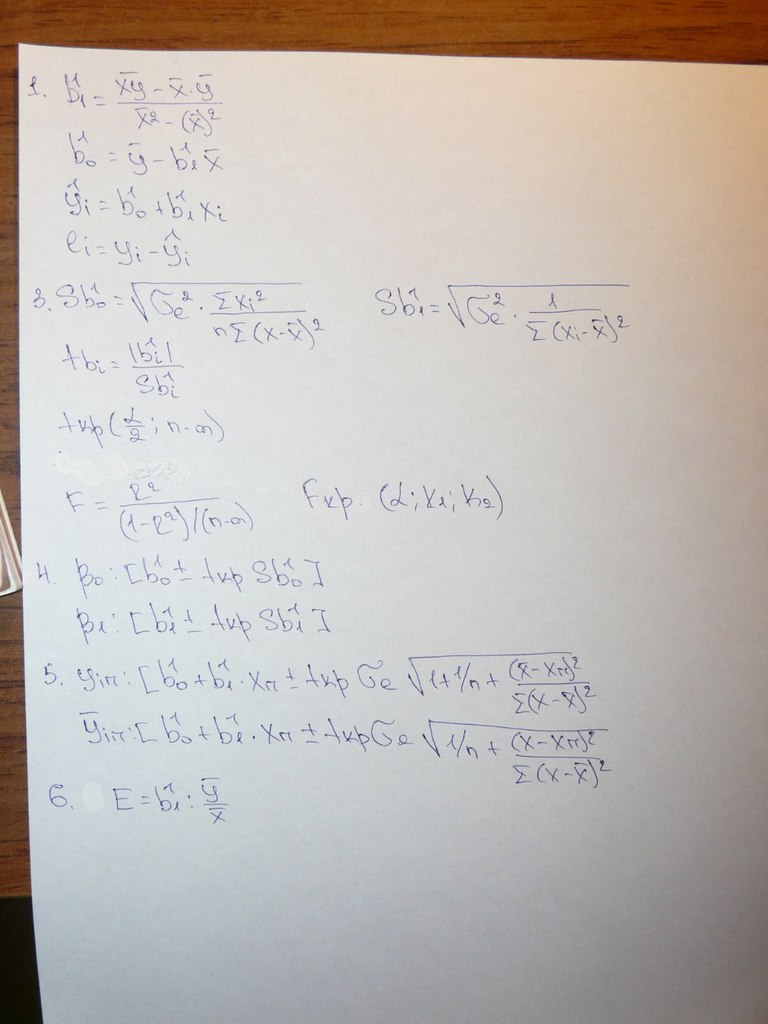 1. b̂₁ = (x̄ȳ - x̄·ȳ) / (x̄² - (x̄)²)
b̂₀ = ȳ - b̂₁x̄
ŷᵢ = b̂₀ + b̂₁xᵢ
eᵢ = yᵢ - ŷᵢ
3. Sb̂₀ = √(σₑ² · Σxᵢ² / (nΣ(x-x̄)²)) Sb̂₁ = √(σₑ² · 1 / Σ(xᵢ-x̄)²)
tbᵢ = |b̂ᵢ| / Sb̂ᵢ
tкр(α/2; n-m)
F = R² / ((1-R²)/(n-m)) Fкр. (α; k₁; k₂)
4. β₀: [b̂₀ ± tкр Sb̂₀]
β₁: [b̂₁ ± tкр Sb̂₁]
5. yiп: [b̂₀ + b̂₁·xп ± tкр σₑ √(1 + 1/n + (x̄-xп)² / Σ(x-x̄)²)
ȳiп: [b̂₀ + b̂₁·xп ± tкр σₑ √(1/n + (x-xп)² / Σ(x-x̄)²)
6. E = b̂₁ : ȳ/x̄